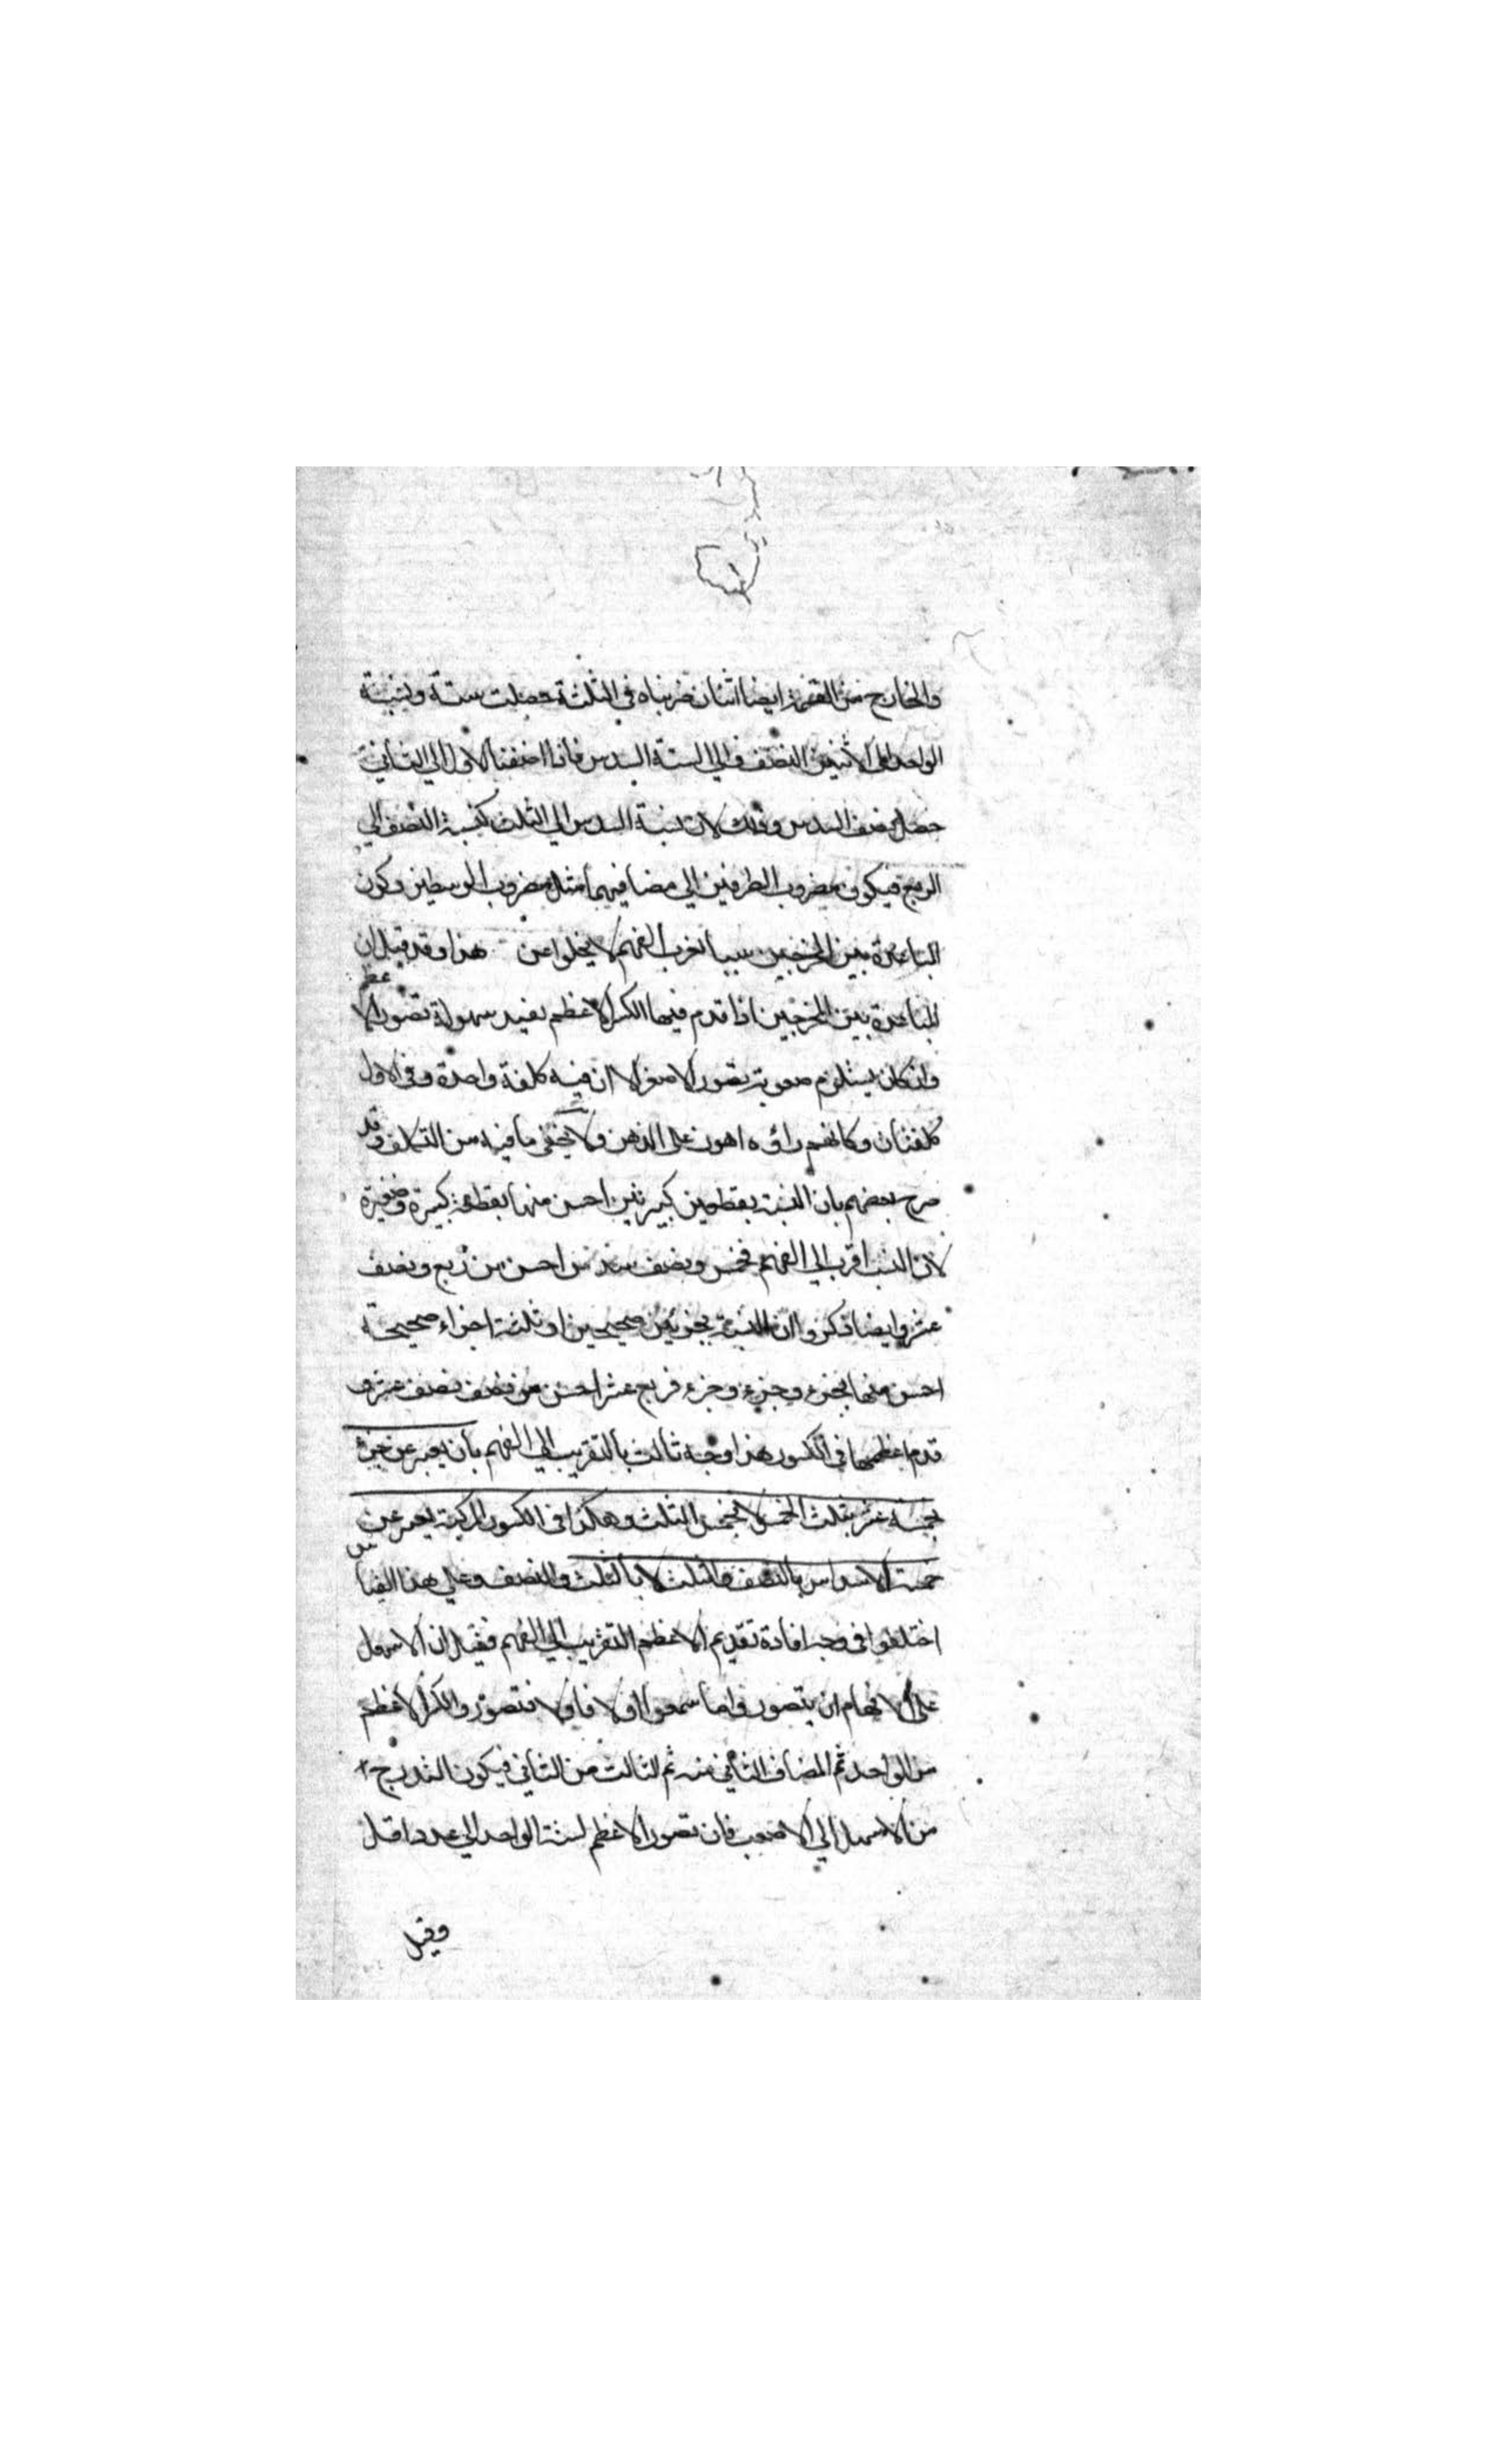 والخارج من القسمة ايضا اثنان ضربناه في الثلثة حصلت ستة ونسبة
الواحد الى الاثنين النصف والى الستة السدس فاذا اضفنا الاول الى الثاني
حصل نصف السدس وذلك لان نسبة السدس الى الثلث كنسبة النصف الى
الربع فيكون مضروب الطرفين الى مضافيهما مثل مضروب الوسطين وكون
المباعدة بين المخرجين سببا لقرب الفهم لا يخلوا عن هذا وقد قيل ان
المباعدة بين المخرجين اذا قدم فيها الكسر الاعظم تفيد سهولة تصور الاعظم
وان كان يستلزم صعوبة تصور الاصغر الا ان فيه كلفة واحدة وفي الاول
كلفتان وكانهم راؤه اهون على الذهن ولا يخفى ما فيه من التكلف وقد
صرح بعضهم بان النسبة بقطعتين كبيرتين احسن منها بقطعة كبيرة وصغيرة
لان النسب اقرب الى الفهم فخمس ونصف سدس احسن من ربع ونصف
عشر وايضا ذكروا ان النسبة بجزئين صحيحين او ثلثة اجزاء صحيحة
احسن منها بجزء وجزء وجزء فربع عشر احسن من نصف نصف عشر و
قدم اعظمها في الكسور هذا وجه ثالث بالتقريب الى الفهم بان يعبر عن جزء
بخمسة عشر بثلث الخمس لا بخمس الثلث وهكذا في الكسور المركبة يعبر عن
خمسة الاسداس بالنصف والثلث لا بالثلث والنصف وعلى هذا القياس
اختلفوا في وجه افادة تقديم الاعظم التقريب الى الفهم فقيل ان الاسهل
على الافهام ان يتصور واما سمعوا اولا فاولا فتصور والكسر الاعظم
من الواحد ثم المضاف الثاني منه ثم الثالث من الثاني فيكون التدريج
من الاسهل الى الاصعب فان تصور الاعظم نسبة الواحد الى عدد اقل
وقيل